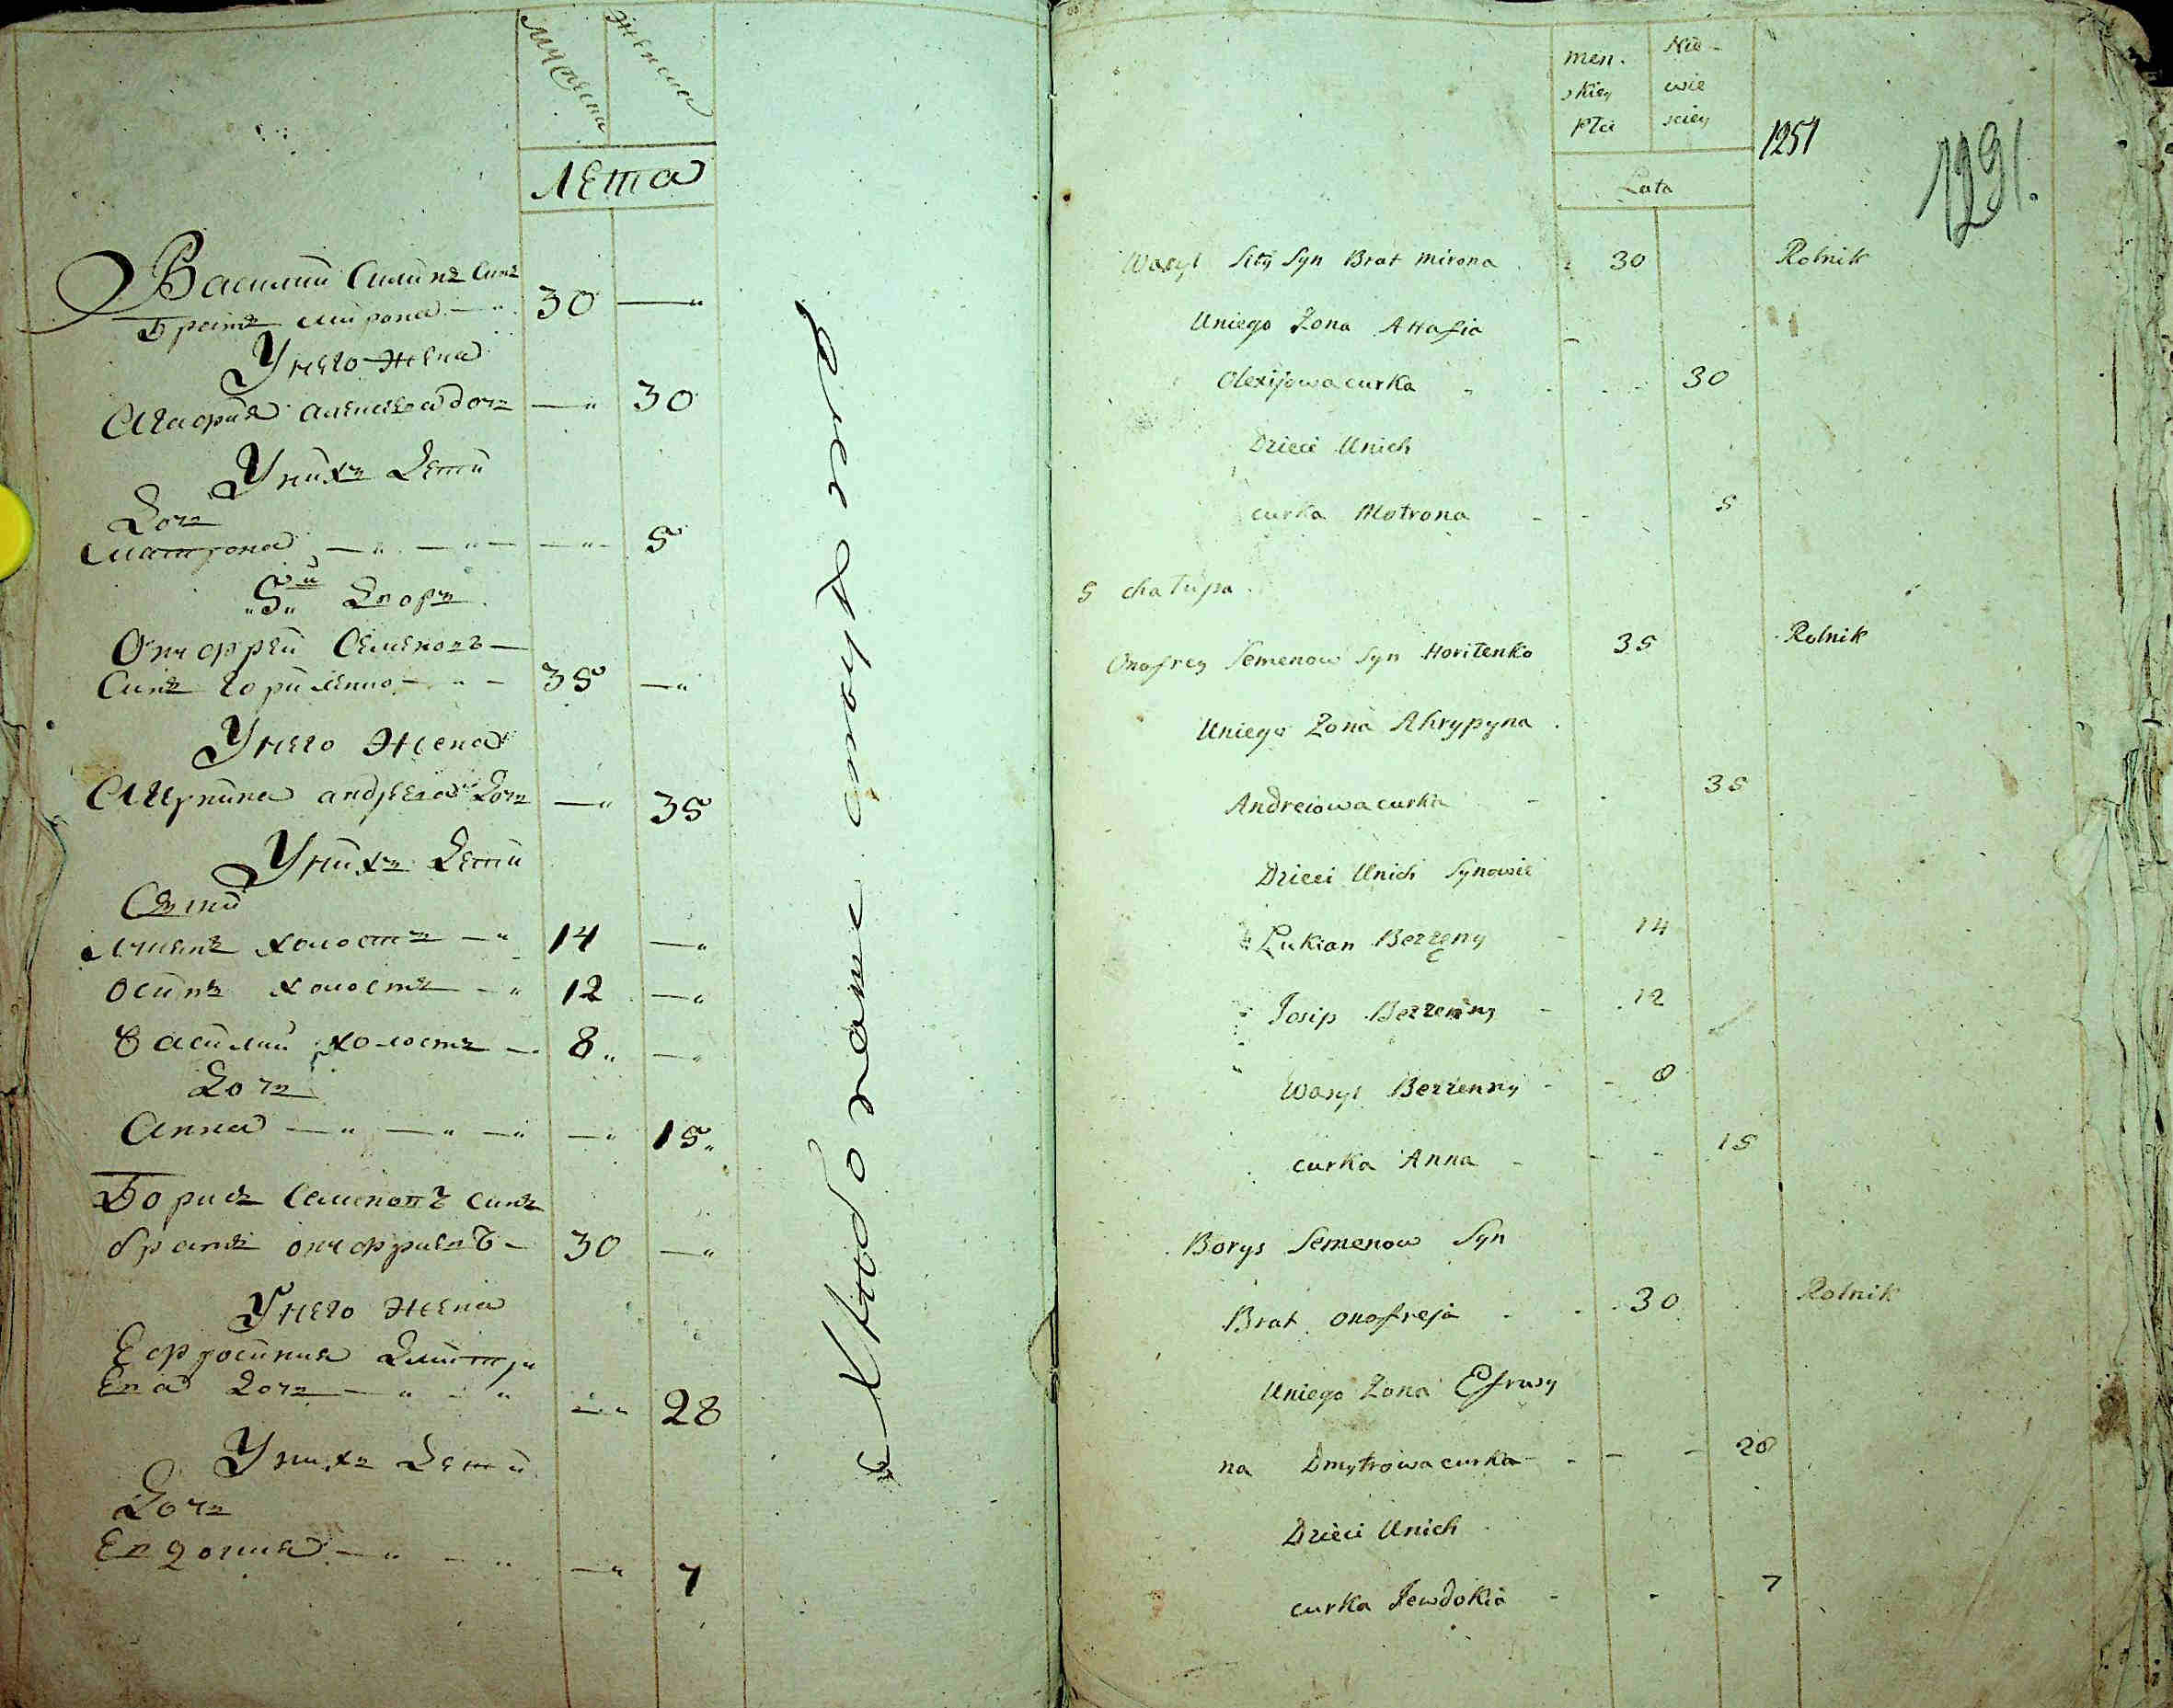 мужска
женска
ЛЕта
Василий Силинъ Синъ
Братъ мирона 30
У него жена
Агафия алексеева дочъ 30
У нихъ Дети
Дочъ
матрона 5
5й Дворъ
Онофрей Семеновъ
Синъ Гориленко 35
У него жена
Акулина андреева Дочъ 35
У нихъ Дети
Сини
холостъ 14
Осипъ холостъ 12
Василий холостъ 8
Дочъ
Анна 15
Борисъ Семеновъ синъ
братъ онофриевъ 30
У него жена
Ефросиния Дмитри
Ева Дочъ 28
У нихъ Дети
Дочъ
Евдокия 7
men. Nie-
skiey wie
Płci sciey
1251
1291.
Lata
Wasyl Siły Syn Brat mirona 30 Rolnik
Uniego Zona Ahafia
Olexijowa curka 30
Dzieci Unich
curka Motrona 5
5 chałupa
Onofrey Semenow Syn Horiłenko 35 Rolnik
Uniego Zona Ahrypyna
Andreiowa curka 35
Dzieci Unich Synowie
Łukian Bezzeny 14
Josip Bezzenny 12
Wasyl Bezzenny 8
curka Anna 15
Borys Semenow Syn
Brat onofreja 30 Rolnik
Uniego Zona Efrusy
na Dmytrowa curka 28
Dzieci Unich
curka Jewdokia 7